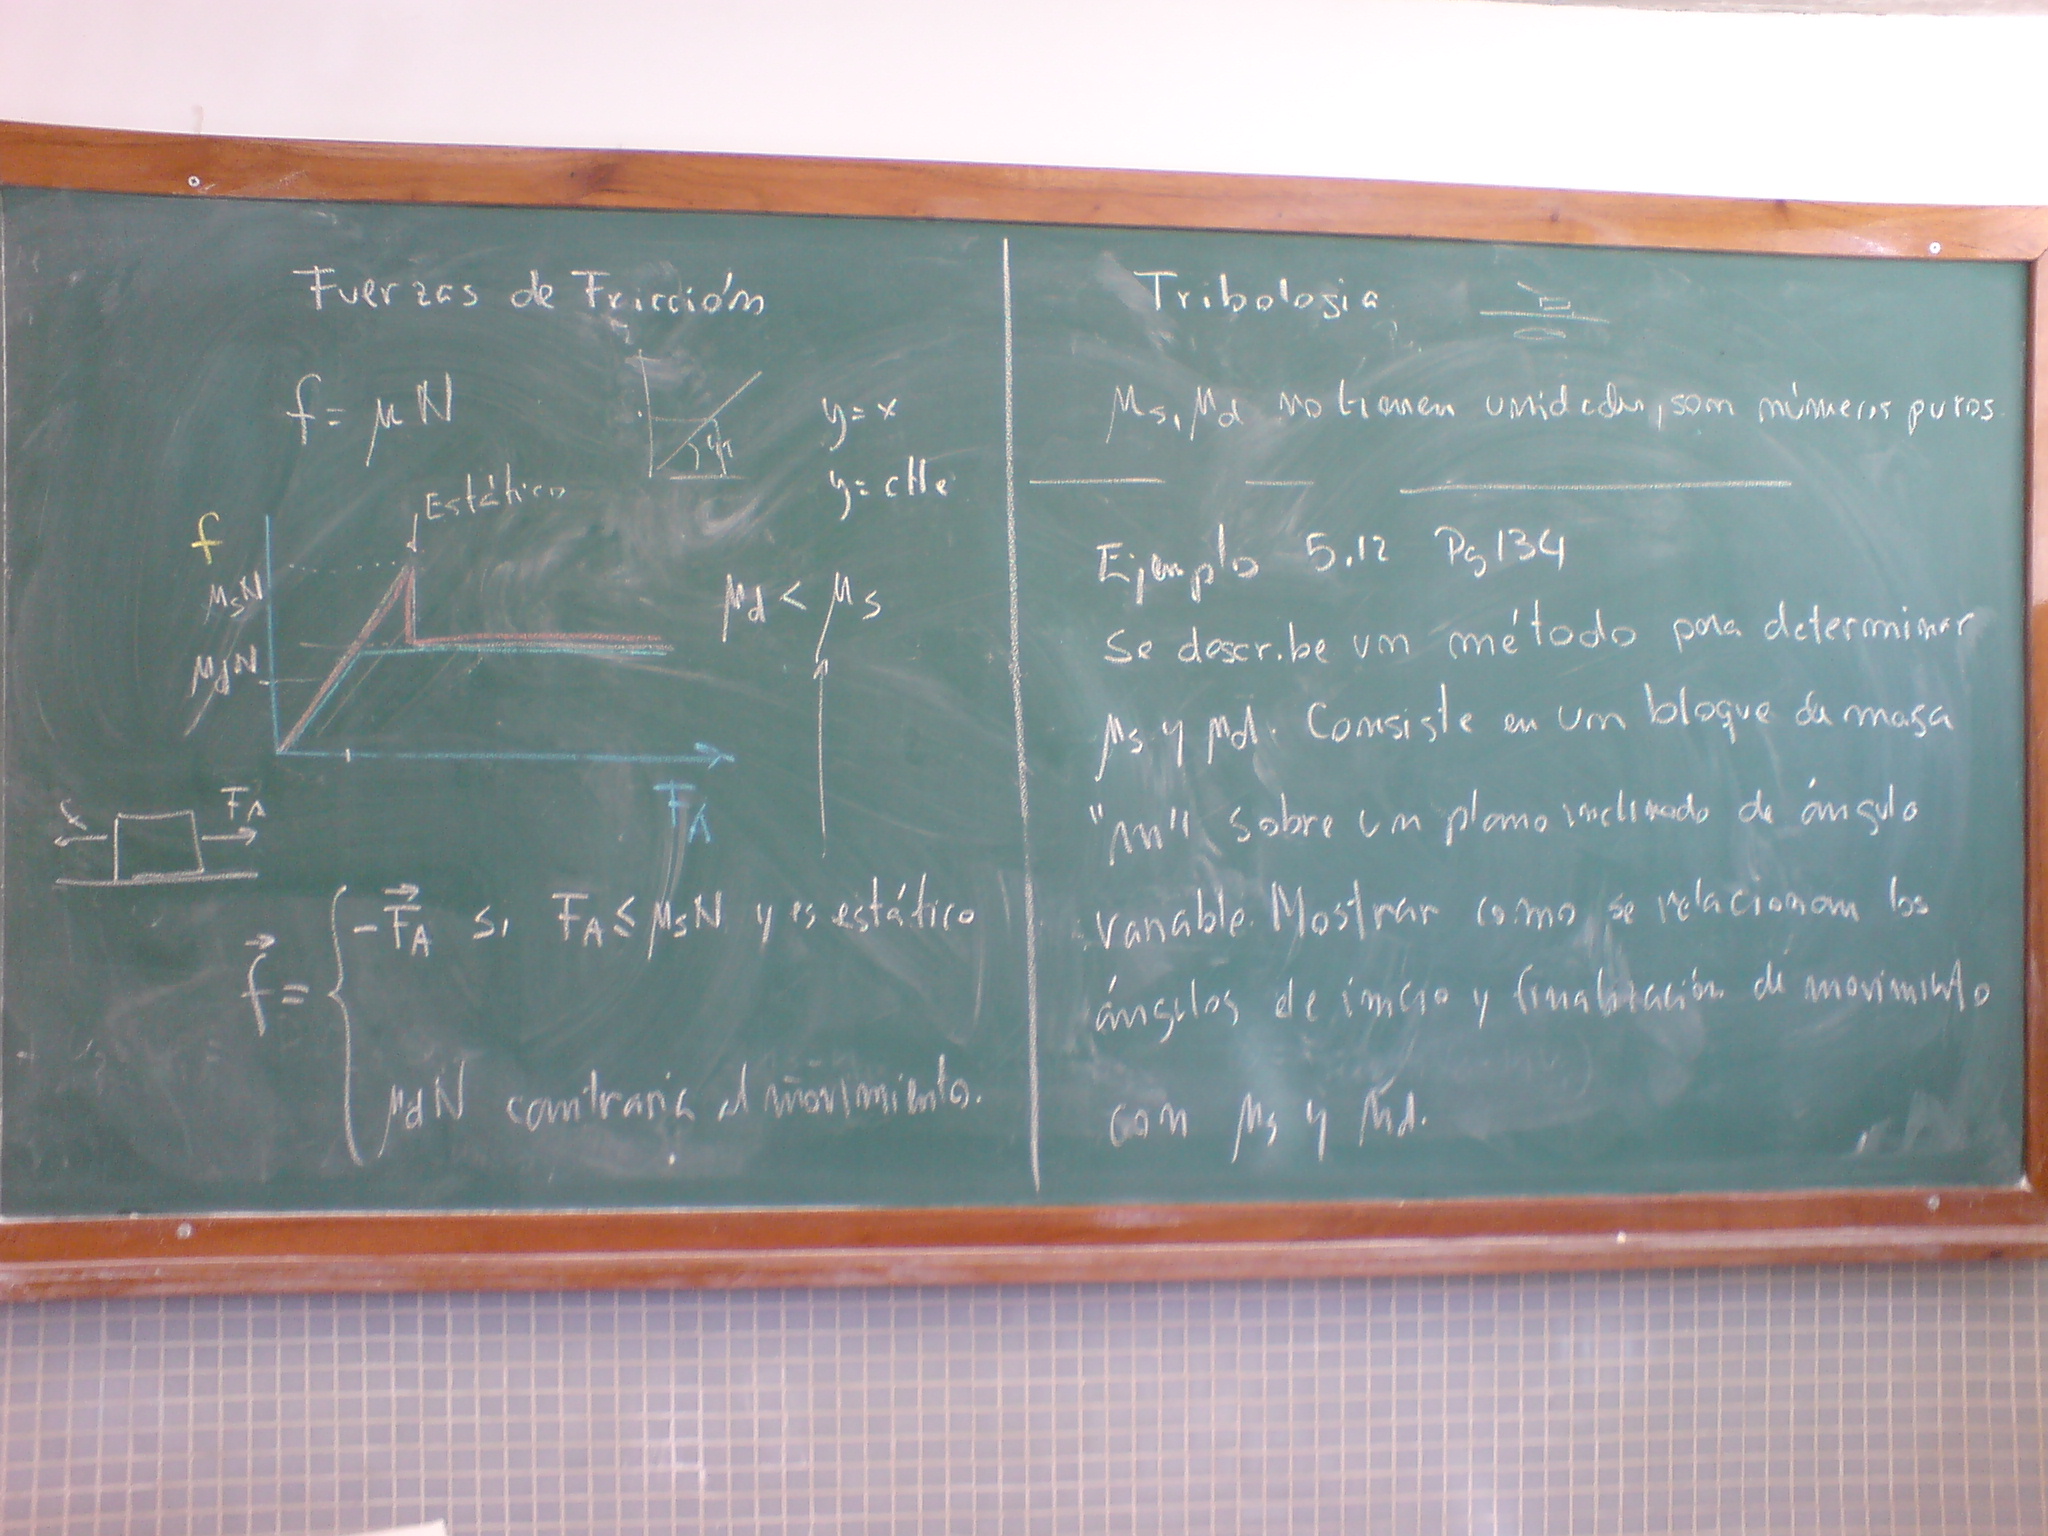 Fuerzas de Fricción
f = μ N
y = x
y = ctte
Estático
f
μsN
μdN
μd < μs
FA
f
FA
f = { -FA si FA ≤ μsN y es estático
μdN contraria al movimiento.
Tribologia
μs, μd no tienen unidades, son números puros.
Ejemplo 5.12 Pg 134
Se describe un método para determinar
μs y μd. Consiste en un bloque de masa
"m" sobre un plano inclinado de ángulo
variable. Mostrar como se relacionan los
ángulos de inicio y finalización de movimiento
con μs y μd.